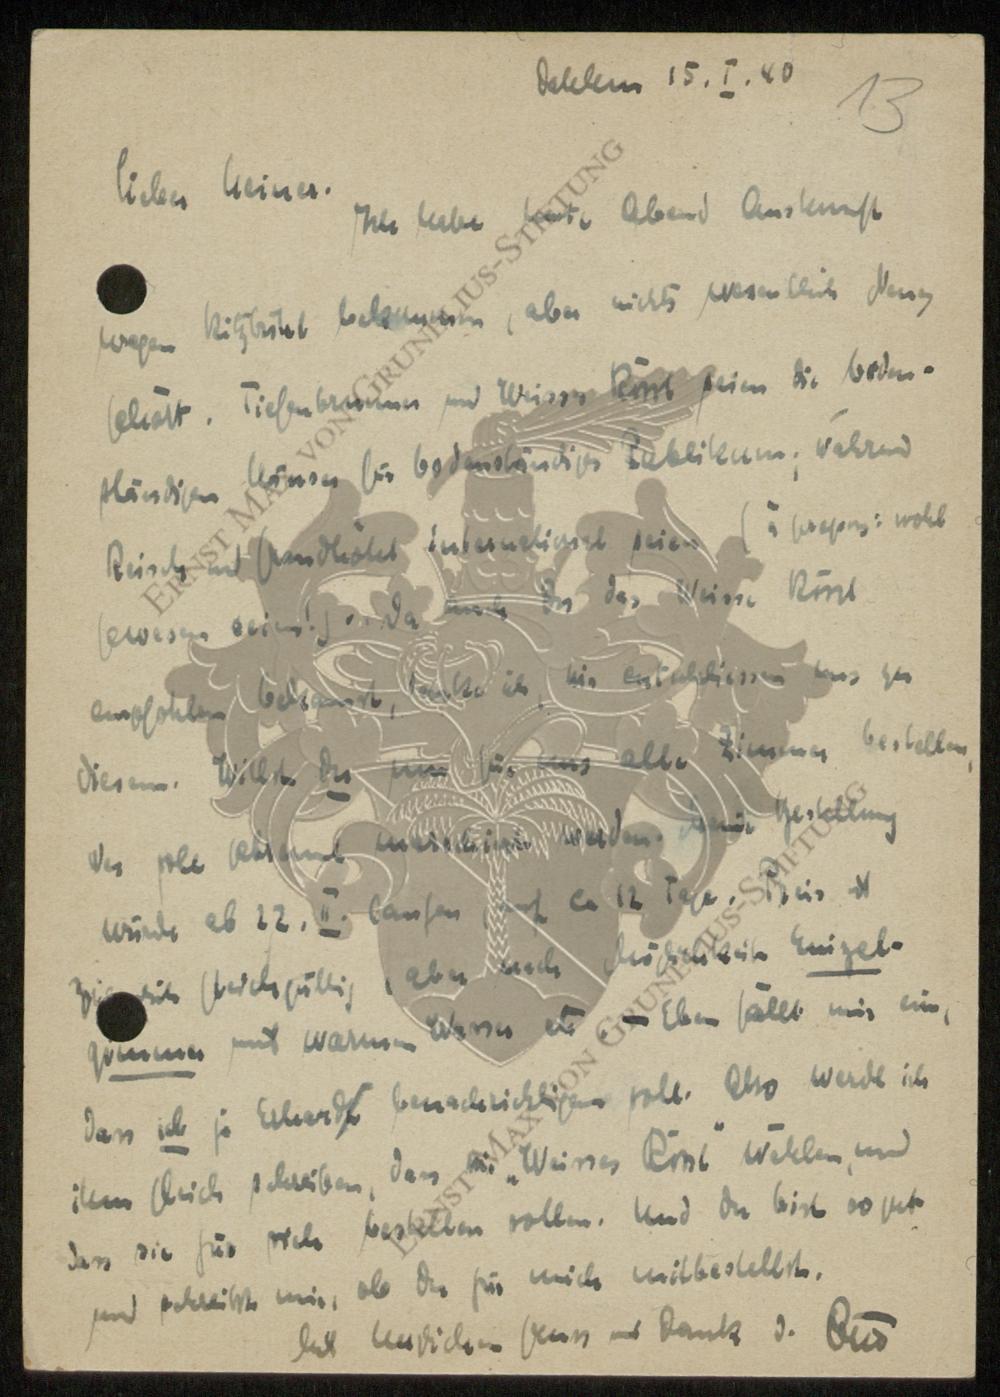 Dahlem 15. I. 40
13
Lieber Heiner.
Ich habe heute Abend Auskunft
wegen Kitzbühel bekommen, aber nichts wesentlich Neues
gehört. Tiefenbrunner und Weisses Rössl seien die boden-
ständigen Häuser für bodenständiges Publikum, während
Reisch und Grandhotel international seien (à propos: wohl
gewesen seien!). Da auch Dir das Weisse Rössl
empfohlen bekannt, denke ich, wir entschliessen uns zu
diesem. Willst Du nun für uns alle Zimmer bestellen,
das soll gesammt werden. Meine Bestellung
würde ab 22. II. laufen, auf ca 12 Tage. Preis ist
ziemlich gleichgültig, aber nach Möglichkeit Einzel-
zimmer mit warmem Wasser etc. – Eben fällt mir ein,
dass ich ja Erhardt benachrichtigen soll. Also werde ich
ihm gleich schreiben, dass wir "Weisses Rössl" wählen, und
dass sie für sich bestellen sollen. Und Du bist so gut
und schreibst mir, ob Du für mich mitbestellst.
Mit herzlichem Gruss und Dank D. Otto
ERNST MAX VON GRUNELIUS-STIFTUNG
ERNST MAX VON GRUNELIUS-STIFTUNG